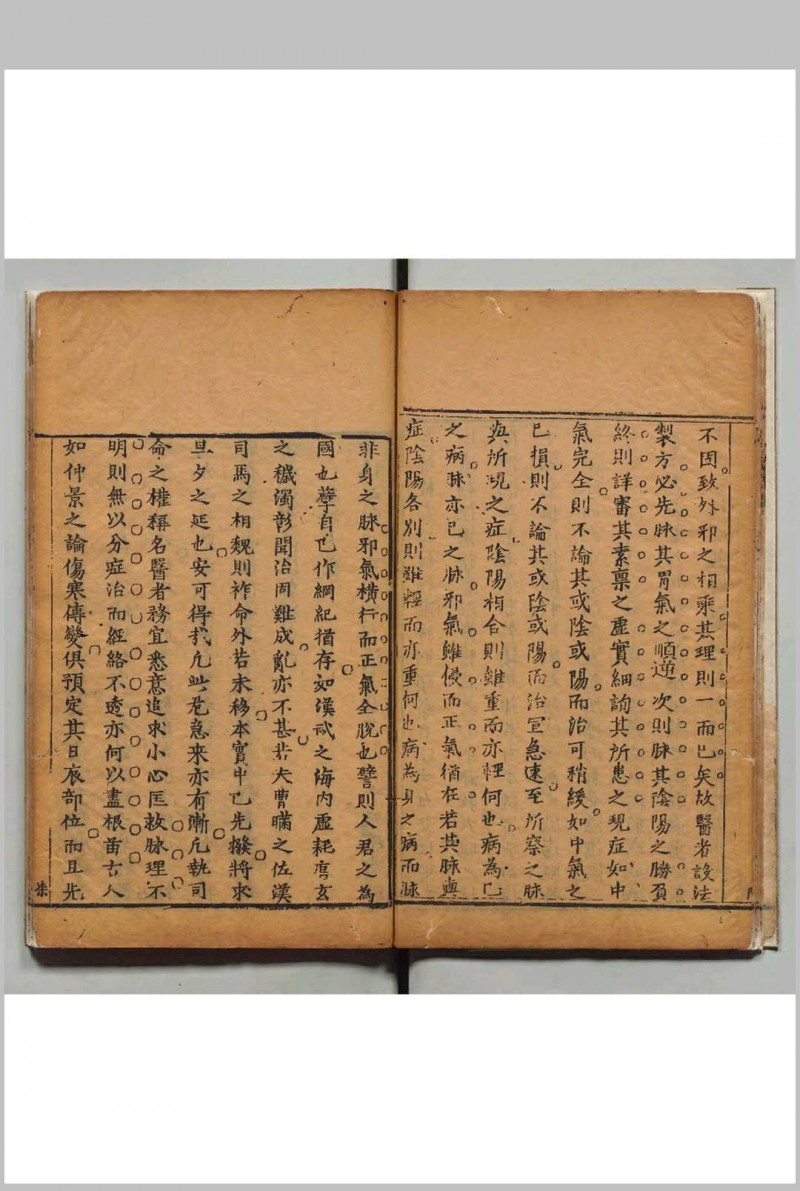 不因致外邪之相乘其理則一而已矣故醫者設法
製方必先脉其胃氣之順逆次則脉其陰陽之勝負
終則詳審其素禀之虛實細詢其所患之現症如中
氣完全則不論其或陰或陽而治可稍緩如中氣之
已損則不論其或陰或陽而治宜急速至所察之脉
與所現之症陰陽相合則雖重而亦輕何也病為已
之病脉亦已之脉邪氣雖侵而正氣猶在若其脉與
症陰陽各別則雖輕而亦重何也病為身之病而脉
非身之脉邪氣橫行而正氣全脫也譬則人君之為
國也孽自已作綱紀猶存如漢武之海内虛耗唐玄
之穢濁彰聞治固難成亂亦不甚若夫曹瞞之佐漢
司馬之相魏則祚命外若未移本實中已先撥將求
旦夕之延也安可得哉凡此危急來亦有漸凡執司
命之權稱名醫者務宜悉意追求小心匡救脉理不
明則無以分症治而經絡不透亦何以盡根苗古人
如仲景之論傷寒傳變俱預定其日衰部位而且先